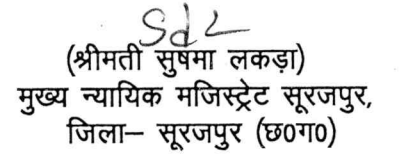 Sd/-
(श्रीमती सुषमा लकड़ा)
मुख्य न्यायिक मजिस्ट्रेट सूरजपुर,
जिला– सूरजपुर (छ0ग0)